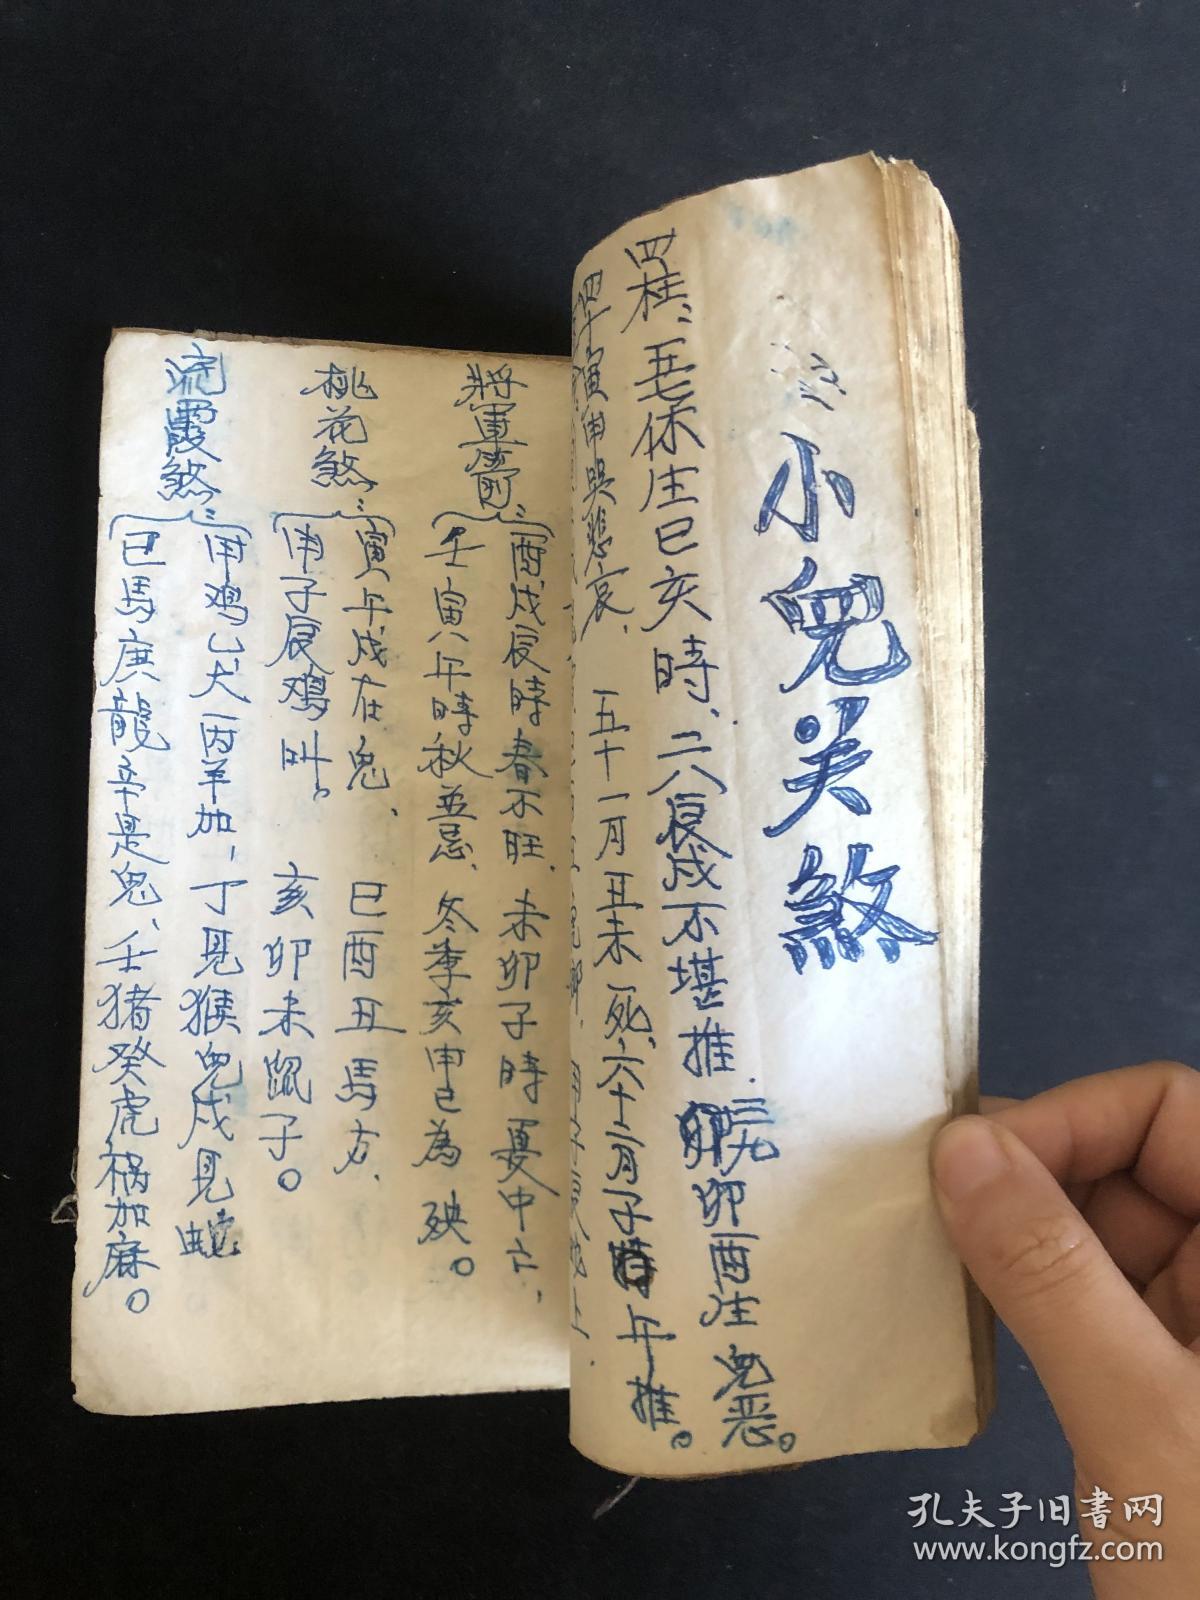 小児关煞
四柱：正七休生巳亥時、二八辰戌不堪推、三九卯酉生児恶。
四十寅申哭悲哀、五十一月丑未死、六十二月子時午推。
將軍箭：
酉戌辰時春不旺、未卯子時夏中亡、
壬寅八午時秋並忌、冬季亥申巳為殃。
桃花煞：
寅午戌在兔、巳酉丑馬方、
申子辰鸡叫。亥卯未鼠子。
流霞煞：
甲鸡乙犬丙羊加、丁見猴兒戊見蛇
己馬庚龍辛是兔、壬猪癸虎祸加麻。
孔夫子旧書网
www.kongfz.com